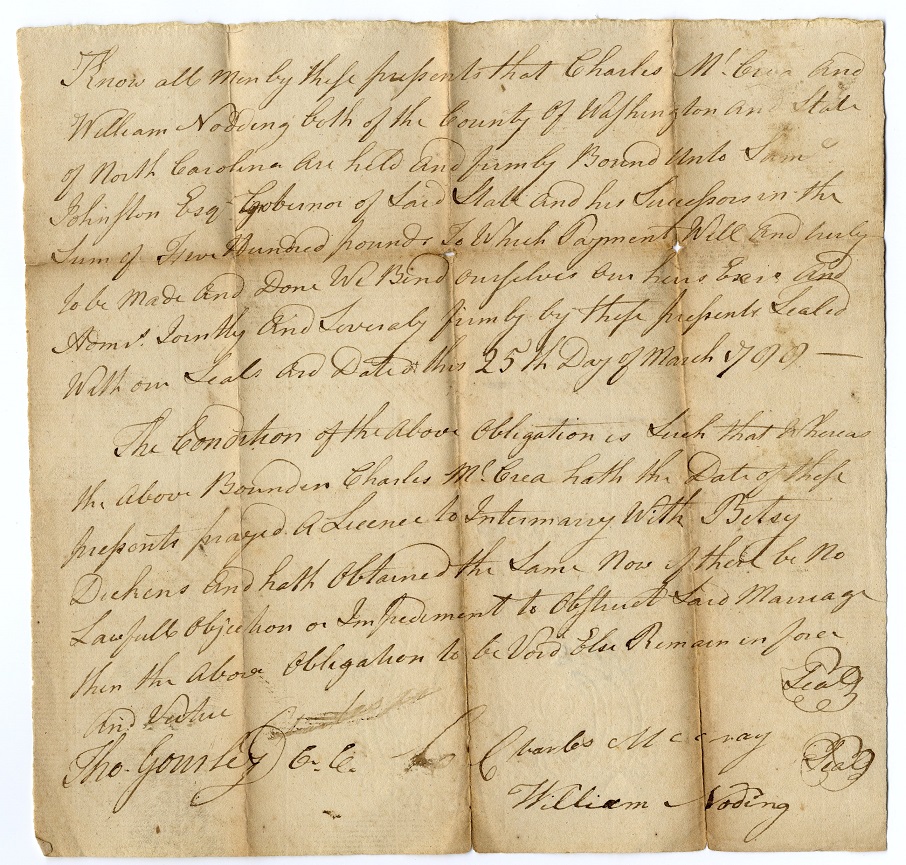 Know all men by these presents that Charles Mc. Crea and
William Nodding both of the County Of Washington and State
of North Carolina are held and firmly Bound Unto Saml
Johnston Esqr Governor of Said State and his Successors in the
Sum of Five Hundred pounds To Which Payment Well and truly
to be Made and Done We Bind ourselves our heirs Exrs and
Admrs. Jointly and Severaly firmly by these presents Sealed
With our Seals and Dated this 25th Day of March 1788 —
The Condition of the above Obligation is Such that Whereas
the Above Bounden Charles Mc. Crea hath the Date of these
presents prayed A Licence to Intermarry With Betsy
Dickens and hath Obtained the Same Now if there be No
Lawfull Objection or Impediment to Obstruct Said Marriage
then the Above Obligation to be Void Else Remain in force
And Vertue
Seal
Tho. Gourley C. C. Charles Mccray Seal
William Noding